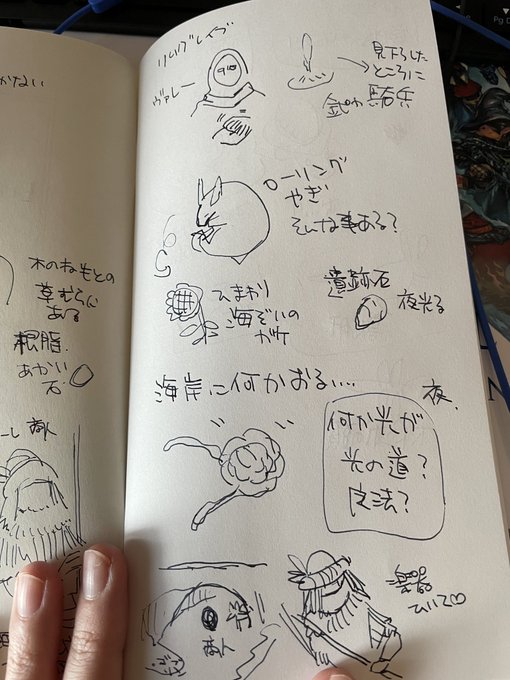 かない
木のねもとの
草むらに
ある
根脂
あかい
石
商人
リムグレイブ
ヴァレー
見下ろした
ところに
騎兵
ローリング
やぎ
そんな事ある?
ひまわり
海ぞいの
がけ
遺跡石
夜光る
海岸に何かおる…
夜、
何か光が
光の道?
商人
楽器
ひいてる